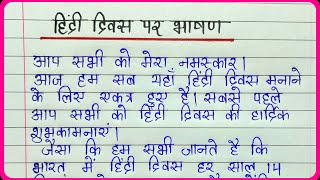 हिंदी दिवस पर भाषण
आप सभी को मेरा नमस्कार।
आज हम सब यहाँ हिंदी दिवस मनाने
के लिए एकत्र हुए है। सबसे पहले
आप सभी को हिंदी दिवस की हार्दिक
शुभकामनाएं।
जैसा कि हम सभी जानते है कि
भारत में हिंदी दिवस हर साल 14